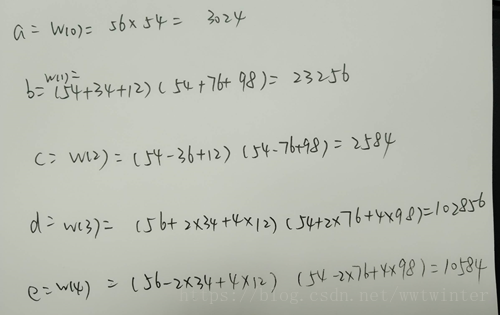 a = W(0) = 56×54 = 3024
W(1)=
b = (54+34+12) (54+76+98) = 23256
c = W(2) = (54-36+12) (54-76+98) = 2584
d = W(3) = (56+2×34+4×12) (54+2×76+4×98)=102856
e = W(4) = (56-2×34+4×12) (54-2×76+4×98)=10584
https://blog.csdn.net/wwtwinter